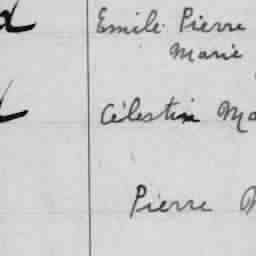 Emile Pierre
Marie
Célestin
Pierre